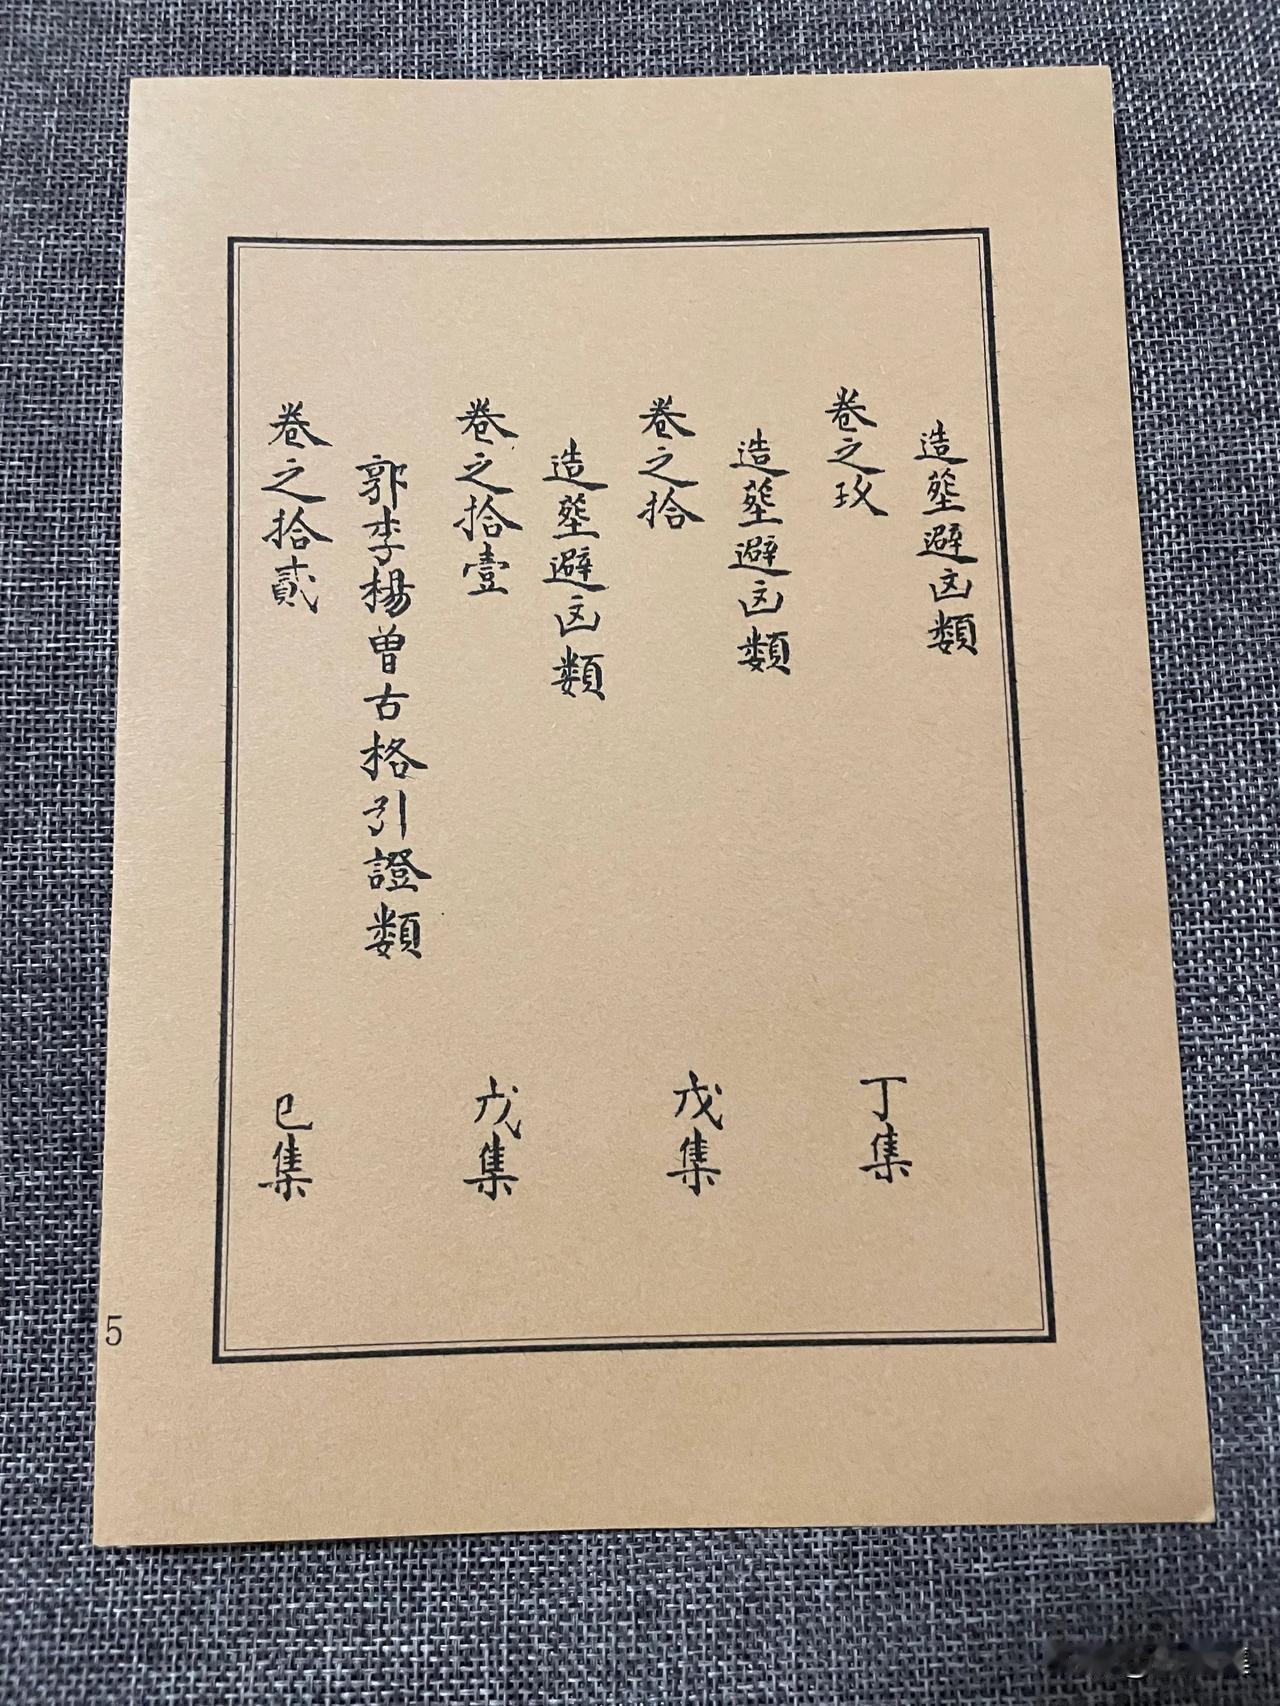 造塟避凶類
卷之玖 丁集
造塟避凶類
卷之拾 戊集
造塟避凶類
卷之拾壹 戊集
郭李楊曾古格引證類
卷之拾貳 巳集
5